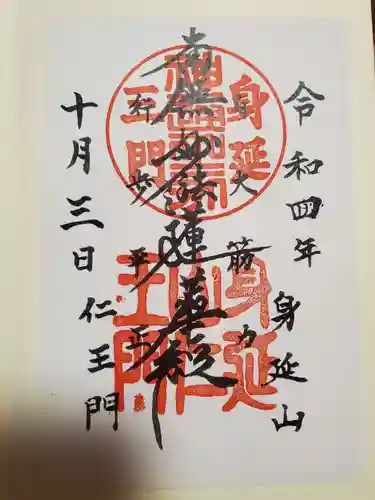 令和四年
身延山
大筋力
南無妙法蓮華経
行歩平正
十月三日
仁王門
身延
山仁
王門
身延
王門